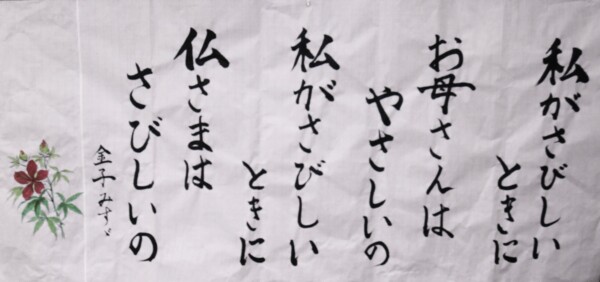 私がさびしい
ときに
お母さんは
やさしいの
私がさびしい
ときに
仏さまは
さびしいの
金子みすゞ